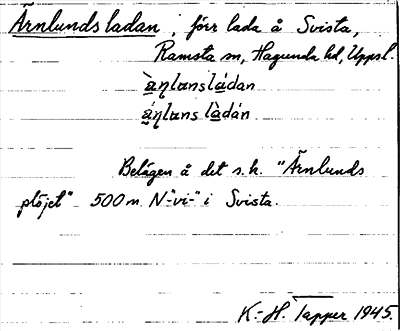 Ärnlundsladan, förr lada å Svista,
Ramsta sn, Hagunda hd, Uppsl.
Belägen å det s.k. "Ärnlunds
plöjet" 500 m N "-vi-" i Svista.
K.-H. Tapper 1945.